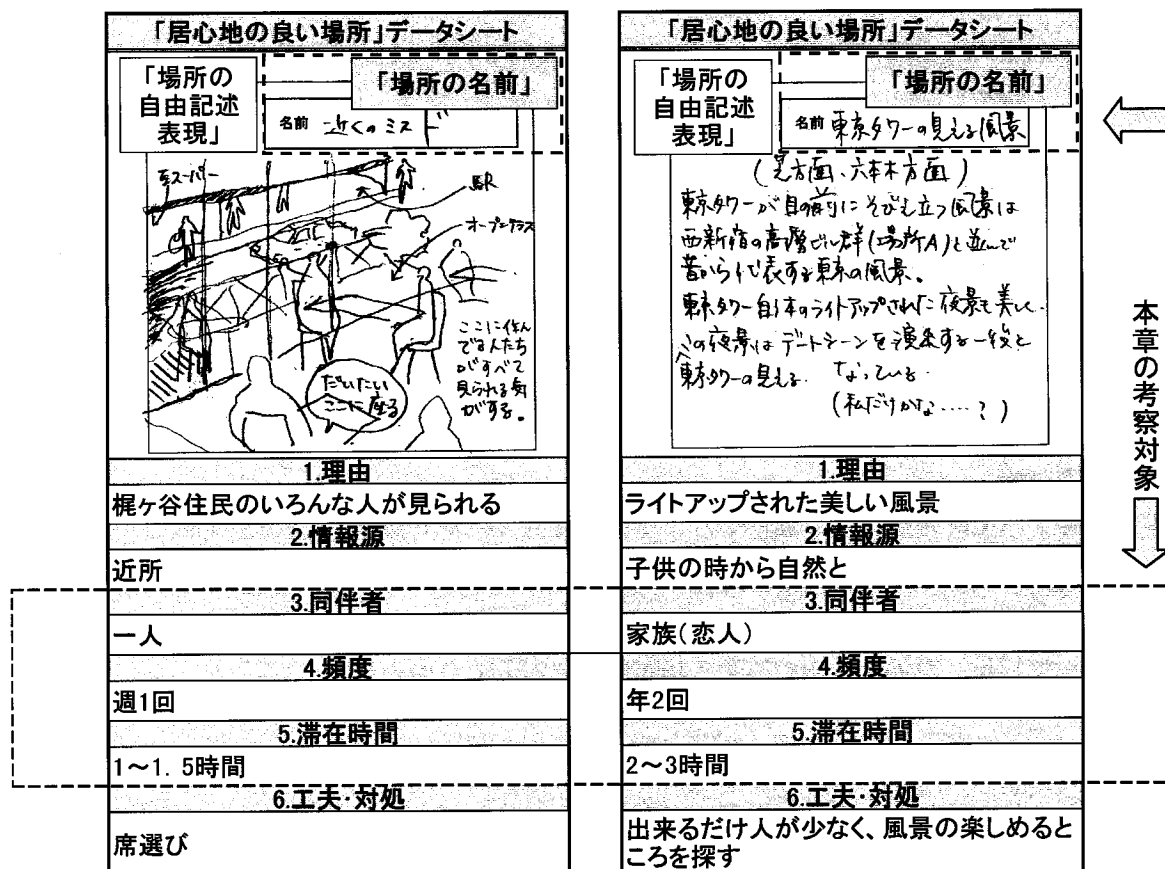 「居心地の良い場所」データシート
「場所の
自由記述
表現」
「場所の名前」
名前 近くのミスド
駅
オープンテラス
ここに住ん
でる人たち
がすべて
見られる気
がする。
だいたい
ここに座る
1.理由
梶ヶ谷住民のいろんな人が見られる
2.情報源
近所
3.同伴者
一人
4.頻度
週1回
5.滞在時間
1～1.5時間
6.工夫・対処
席選び
「居心地の良い場所」データシート
「場所の
自由記述
表現」
「場所の名前」
名前 東京タワーの見える風景
(芝方面、六本木方面)
東京タワーが目の前にそびえ立つ風景は
西新宿の高層ビル群(場所A)と並んで
昔から代表する東京の風景。
東京タワー自体のライトアップされた夜景も美しく、
この夜景はデートシーンを演出する一役と
東京タワーの見える なっている。
(私だけかな……?)
1.理由
ライトアップされた美しい風景
2.情報源
子供の時から自然と
3.同伴者
家族(恋人)
4.頻度
年2回
5.滞在時間
2～3時間
6.工夫・対処
出来るだけ人が少なく、風景の楽しめると
ころを探す
本章の考察対象